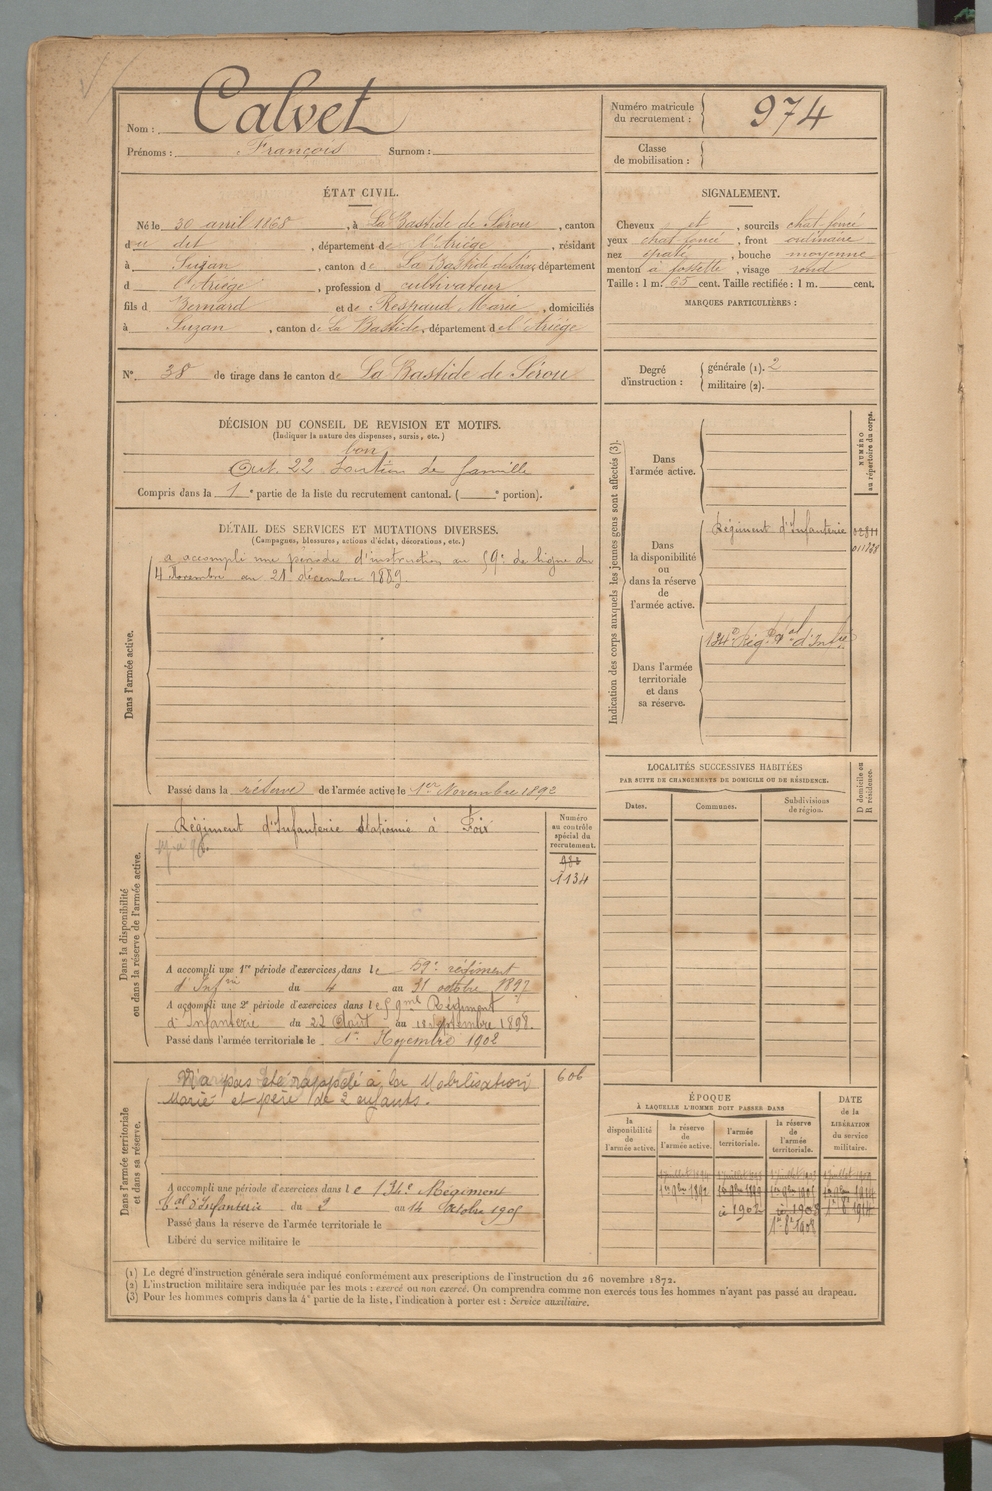 Nom : Calvet
Prénoms : François Surnom :
Numéro matricule du recrutement : 974
Classe de mobilisation :
ÉTAT CIVIL.
Né le 30 avril 1868, à La Bastide de Sérou, canton
du dit, département de l'Ariége, résidant
à Suzan, canton de La Bastide de Sérou, département
d l'Ariége, profession d cultivateur
fils d Bernard et de Respaud Marie, domiciliés
à Suzan, canton de La Bastide, département de l'Ariége
N° 38 de tirage dans le canton de La Bastide de Sérou
SIGNALEMENT.
Cheveux et, sourcils chat. foncé
yeux chat. foncé, front ordinaire
nez épaté, bouche moyenne
menton à fossette, visage rond
Taille : 1 m. 65 cent. Taille rectifiée : 1 m. cent.
MARQUES PARTICULIÈRES :
Degré d'instruction :
générale (1). 2
militaire (2).
DÉCISION DU CONSEIL DE REVISION ET MOTIFS.
(Indiquer la nature des dispenses, sursis, etc.)
bon
Art. 22 soutien de famille
Compris dans la 1e partie de la liste du recrutement cantonal. ( e portion).
DÉTAIL DES SERVICES ET MUTATIONS DIVERSES.
(Campagnes, blessures, actions d'éclat, décorations, etc.)
Dans l'armée active.
a accompli une période d'instruction au 59e de ligne du
4 Novembre au 21 décembre 1889.
Passé dans la réserve de l'armée active le 1er Novembre 1892
Indication des corps auxquels les jeunes gens sont affectés (3).
NUMÉRO au répertoire du corps.
Dans l'armée active.
Dans la disponibilité ou dans la réserve de l'armée active.
Régiment d'Infanterie
Dans l'armée territoriale et dans sa réserve.
134e Rég.t T.al d'Inf.ie
Dans la disponibilité ou dans la réserve de l'armée active.
Régiment d'Infanterie stationné à Foix
Numéro au contrôle spécial du recrutement.
1134
A accompli une 1re période d'exercices dans le 59e régiment
d'Inf.rie du 4 au 31 octobre 1897
A accompli une 2e période d'exercices dans le 59me Régiment
d'Infanterie du 22 Août au 18 Septembre 1898.
Passé dans l'armée territoriale le 1er Novembre 1902
Dans l'armée territoriale et dans sa réserve.
N'a pas été rappelé à la Mobilisation
Marié et père de 2 enfants.
606
A accompli une période d'exercices dans le 134e Régiment
T.al d'Infanterie du 2 au 14 Octobre 1905
Passé dans la réserve de l'armée territoriale le
Libéré du service militaire le
LOCALITÉS SUCCESSIVES HABITÉES
PAR SUITE DE CHANGEMENTS DE DOMICILE OU DE RÉSIDENCE.
Dates. Communes. Subdivisions de région.
D domicile ou R résidence.
ÉPOQUE
À LAQUELLE L'HOMME DOIT PASSER DANS
la disponibilité de l'armée active.
la réserve de l'armée active.
l'armée territoriale.
la réserve de l'armée territoriale.
DATE de la LIBÉRATION du service militaire.
(1) Le degré d'instruction générale sera indiqué conformément aux prescriptions de l'instruction du 26 novembre 1872.
(2) L'instruction militaire sera indiquée par les mots : exercé ou non exercé. On comprendra comme non exercés tous les hommes n'ayant pas passé au drapeau.
(3) Pour les hommes compris dans la 4e partie de la liste, l'indication à porter est : Service auxiliaire.